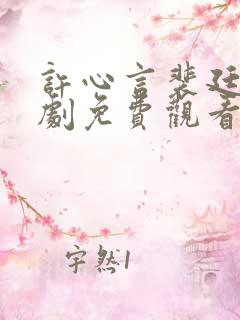 許心言裴廷
劇免費觀看
宇然1